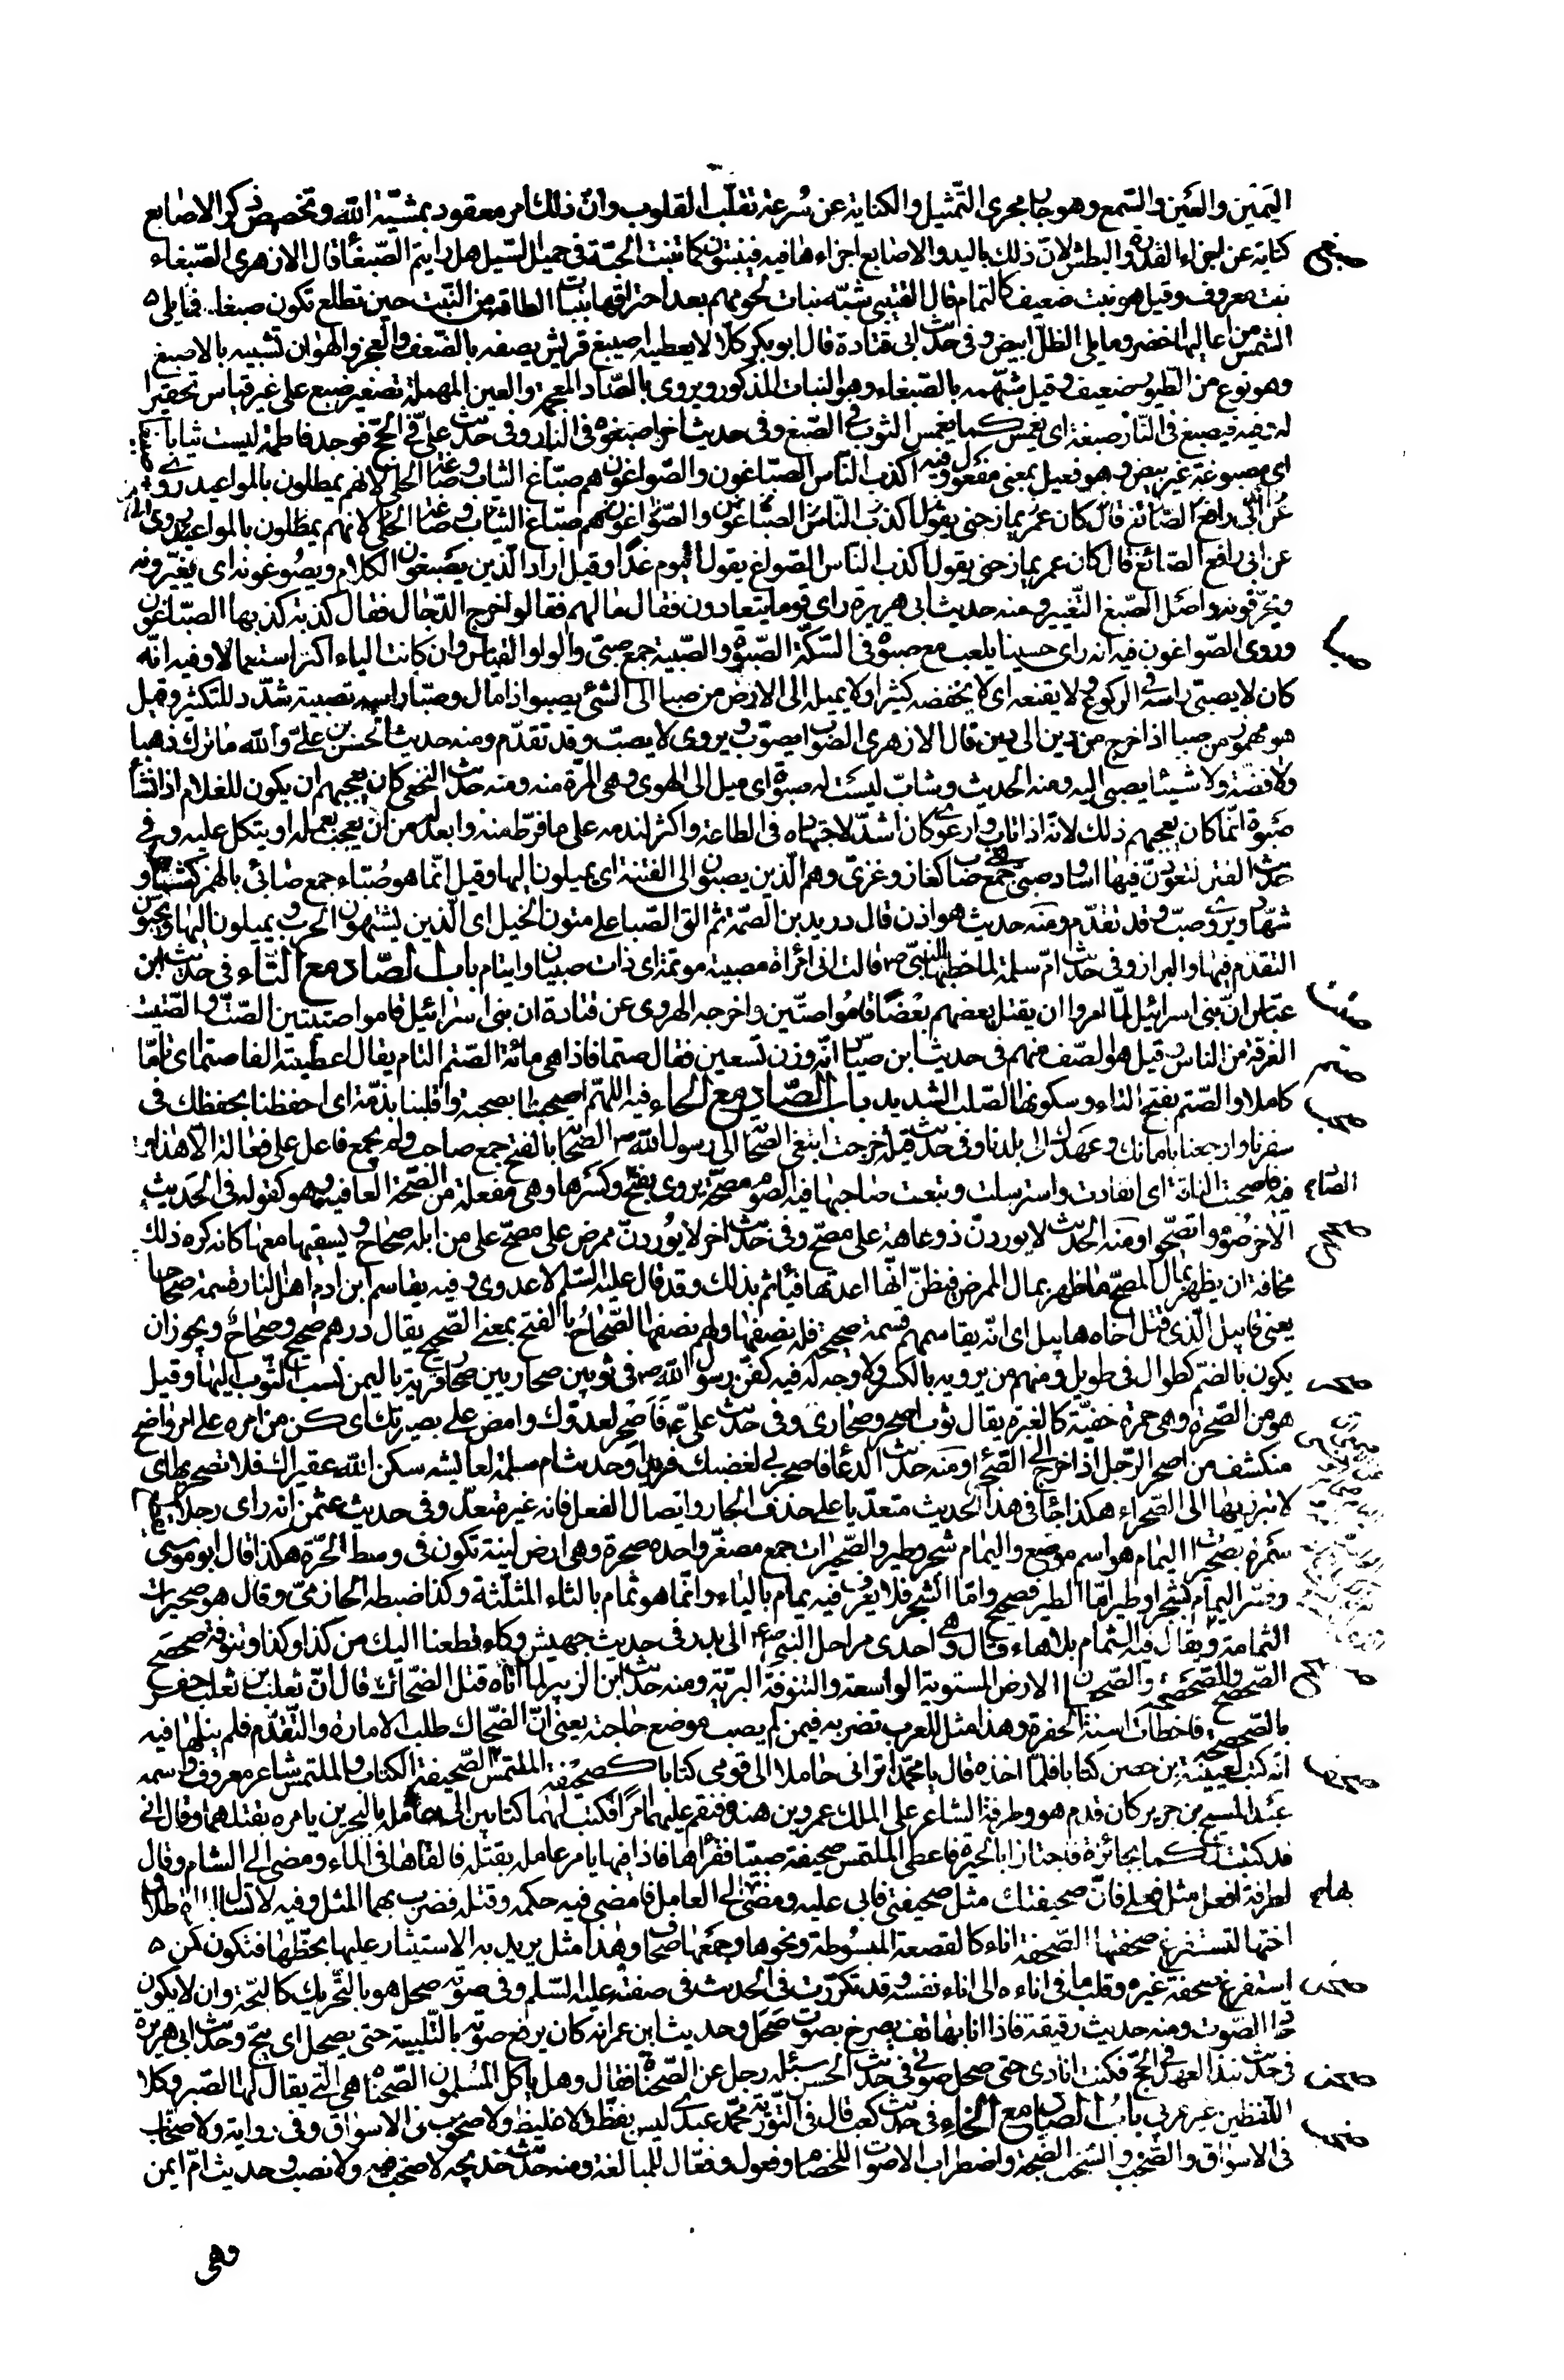 اليمين والعين والسمع وهو جار مجرى التمثيل والكناية عن سرعة تقلب القلوب وان ذلك امر معقود بمشية الله وتخصيص ذكر الاصابع
كناية عن اجزاء القدرة والبطش لان ذلك باليد والاصابع اجزاءها فيه فينبتون كما تنبت الحبة فى حميل السيل هل رايتم الصبغاء قال الازهرى الصبغاء
صبغ
نبت معروف وقيل هو نبت ضعيف كالثمام قال القتيبى شبه نبات لحومهم بعد احتراقها بنبات الطاقة من النبت حين تطلع تكون صبغاء فما يلى
الشمس من اعاليها اخضر وما يلى الظل ابيض وفى حديث ابى قتادة قال ابو بكر كلا لا يعطيه اصيبغ قريش يصفه بالضعف والعجز والهوان تشبيه بالاصبغ
وهو نوع من الطيور ضعيف وقيل شبهه بالصبغاء وهو النبات المذكور ويروى بالضاد المعجمة والعين المهملة تصغير ضبع على غير قياس تحقيرا
له وفيه فيصبغ فى النار صبغة اى يغمس كما يغمس الثوب فى الصبغ وفى حديث اخر اصبغوه فى النار وفى حديث على فى الحج فوجد فاطمة لبست ثيابا
اى مصبوغة غير بيض وهو فعيل بمعنى مفعول وفيه اكذب الناس الصباغون والصواغون هم صباغ الثياب وصاغة الحلى لانهم يمطلون بالمواعيد روى
عن ابى رافع الصائغ قال كان عمر يمازحنى يقول اكذب الناس الصباغون والصواغون هم صباغ الثياب وصاغة الحلى لانهم يمطلون بالمواعيد
عن ابى رافع الصائغ قال كان عمر يمازحنى يقول اكذب الناس الصواغ يقول اليوم غدا وقيل اراد الذين يصبغون الكلام ويصوغونه اى يغيرونه
ويخرقونه واصل الصبغ التغيير ومنه حديث ابى هريرة راى قوما يتعادون فقال ما لهم فقالوا خرج الدجال فقال كذبة كذبها الصباغون
صبا
وروى الصواغون فيه انه راى حسينا يلعب مع صبوة فى السكة الصبوة والصبية جمع صبى والواو القياس وان كانت الياء اكثر استعمالا وفيه انه
كان لا يصبى راسه فى الركوع ولا يقنعه اى لا يخفضه كثيرا ولا يميله الى الارض من صبا الى الشئ يصبو اذا مال وصبا راسه تصبية شدد للتكثير وقيل
هو مهموز من صبا اذا خرج من دين الى دين قال الازهرى الصواب يصوب ويروى لا يصب وقد تقدم ومنه حديث الحسن بن على والله ما ترك ذهبا
ولا فضة ولا شيئا يصبى اليه ومنه الحديث وشاب ليست له صبوة اى ميل الى الهوى وهى المرة منه ومنه حديث النخعى كان يعجبهم ان يكون للغلام اذا نشأ
صبوة انما كان يعجبهم ذلك لانه اذا تاب وارعوى كان اشد لاجتهاده فى الطاعة واكثر لندمه على ما فرط منه وابعد له من ان يعجب بعمله او يتكل عليه وفى
حديث الفتن لتعودن فيها اساود صبى جمع صاب كغاز وغزى وهم الذين يصبون الى الفتنة اى يميلون اليها وقيل انما هو صباء جمع صابئ بالهمز كشاهد و
شهاد ويروى صب وقد تقدم ومنه حديث هوازن قال دريد بن الصمة ثم الق الصبا على متون الخيل اى الذين يشتهون الحرب ويميلون اليها ويحبون
التقدم فيها والبراز وفى حديث ام سلمة لما خطبها النبى ص قالت انى امرأة مصبية موتمة اى ذات صبيان وايتام باب الصاد مع التاء فى حديث ابن
صتت
عباس ان بنى اسرائيل لما امروا ان يقتل بعضهم بعضا قاموا صتين واخرجه الهروى عن قتادة ان بنى اسرائيل قاموا صتيتين الصت والصتيت
الفرقة من الناس وقيل هو الصف منهم فى حديث ابن صياد انه وزن تسعين فقال صتما فاذا هى مائة الصتم التام يقال اعطيته الفا صتما اى تاما
صتم
كاملا والصتم بفتح التاء وسكونها الصلب الشديد باب الصاد مع الحاء فيه اللهم اصحبنا بصحبة واقلبنا بذمة اى احفظنا بحفظك فى
صحب
سفرنا وارجعنا بامانك وعهدك الى بلدنا وفى حديث قيلة خرجت ابتغى الصحابة الى رسول الله ص الصحابة بالفتح جمع صاحب ولم يجمع فاعل على فعالة الا هذا
فيه فاصحبت الناقة اى انقادت واسترسلت وتبعت صاحبها فيه الصوم مصحة يروى بفتح وكسرها وهى مفعلة من الصحة العافية وهو كقوله فى الحديث
صحح
الاخر صوموا تصحوا ومنه الحديث لا يوردن ذو عاهة على مصح وفى حديث اخر لا يوردن ممرض على مصح على من ابله صحاح ويسقيها معها كانه كره ذلك
مخافة ان يظهر بمال المصح ما ظهر بمال الممرض فيظن انها اعدتها فيأثم بذلك وقد قال عليه السلم لا عدوى وفيه يقاسم ابن ادم اهل النار قسمة صحاحا
يعنى قابيل الذى قتل اخاه هابيل اى انه يقاسمهم قسمة صحيحة فله نصفها ولهم نصفها الصحاح بالفتح بمعنى الصحيح يقال درهم صحيح وصحاح ويجوز ان
يكون بالضم كطوال فى طويل ومنهم من يرويه بالكسر ولا وجه له فيه كفن رسول الله ص فى ثوبين صحاريين صحار قرية باليمن نسب الثوب اليها وقيل
صحر
هو من الصحرة وهى حمرة خفية كالغبرة يقال ثوب اصحر وصحارى وفى حديث على فاصحر لعدوك وامض على بصيرتك اى كن من امره على امر واضح
منكشف من اصحر الرجل اذا خرج الى الصحراء ومنه حديث الدعاء فاصحر بى لغضبك فريدا وحديث ام سلمة لعايشه سكن الله عقيراك فلا تصحريها اى
لا تبرزيها الى الصحراء هكذا جاء فى هذا الحديث متعديا على حذف الجار وايصال الفعل فانه غير متعد وفى حديث عثمن انه راى رجلا
سمرة بصحيرات اليمام هو اسم موضع واليمام شجر وطير والصحيرات جمع مصغر واحده صحرة وهى ارض لينة تكون فى وسط الحرة هكذا قال ابو موسى
وفسر اليمام بشجر او طير اما الطير فصحيح واما الشجر فلا يعرف فيه يمام بالياء وانما هو ثمام بالثاء المثلثة وكذا ضبطه الحازمى وقال هو صحيرات
الثمامة ويقال فيه الثمام بلا هاء وقال وهى احدى مراحل النبى ص الى بدر فى حديث جهيش وكاء قطعنا اليك من كذا وكذا وتنوفة صحصح
صحصح
الصحصح والصحصحة والصحصحان الارض المستوية الواسعة والتنوفة البرية ومنه حديث ابن الزبير لما اتاه قتل الضحاك قال ان ثعلب بن ثعلب حفر
بالصحصحة فاخطات استه الحفرة وهذا مثل للعرب تضربه فيمن لم يصب موضع حاجته يعنى ان الضحاك طلب الامارة والتقدم فلم ينلها فيه
صحف
انه كتب لعيينة بن حصن كتابا فلما اخذه قال يا محمد اترانى حاملا الى قومى كتابا كصحيفة الملتمس الصحيفة الكتاب والملتمس شاعر معروف واسمه
عبد المسيح بن جرير كان قدم هو وطرفة الشاعر على الملك عمرو بن هند فنقم عليهما امرا فكتب لهما كتابين الى عامله بالبحرين يامره بقتلهما وقال انى
قد كتبت لكما بجائزة فاجتازا بالحيرة فاعطى الملتمس صحيفة صبيا فقراها فاذا فيها يامر عامله بقتله فالقاها فى الماء ومضى الى الشام وقال
لطرفة افعل مثل فعلى فان صحيفتك مثل صحيفتى فابى عليه ومضى الى العامل فامضى فيه حكمه وقتله فضرب بهما المثل وفيه لا تسال المراة طلاق
اختها لتستفرغ صحفتها الصحفة اناء كالقصعة المبسوطة ونحوها وجمعها صحاف وهذا مثل يريد به الاستيثار عليها بحظها فتكون كمن
استفرغ صحفة غيره وقلب ما فى اناءه الى اناء نفسه وقد تكررت فى الحديث فى صفته عليه السلم وفى صوته صحل هو بالتحريك كالبحة وان لا يكون
صحل
حاد الصوت ومنه حديث رقيقة فاذا انا بهاتف يصرخ بصوت صحل وحديث ابن عمر انه كان يرفع صوته بالتلبية حتى يصحل اى يبح وحديث ابى هريرة
فى حديث نبذ العهد فى الحج فكنت انادى حتى صحل صوتى فى حديث الحسن سئله رجل عن الصحناة فقال وهل ياكل المسلمون الصحناة هى التى يقال لها الصير وكلا
صحن
اللفظين غير عربى باب الصاد مع الخاء فى حديث كعب قال فى التورية محمد عبدى ليس بفظ ولا غليظ ولا صخوب فى الاسواق وفى رواية ولا صخاب
صخب
فى الاسواق والصخب والسخب الضجة واضطراب الاصوات للخصام وفعول وفعال للمبالغة ومنه حديث خديجه لا صخب فيه ولا نصب وحديث ام ايمن
وهى